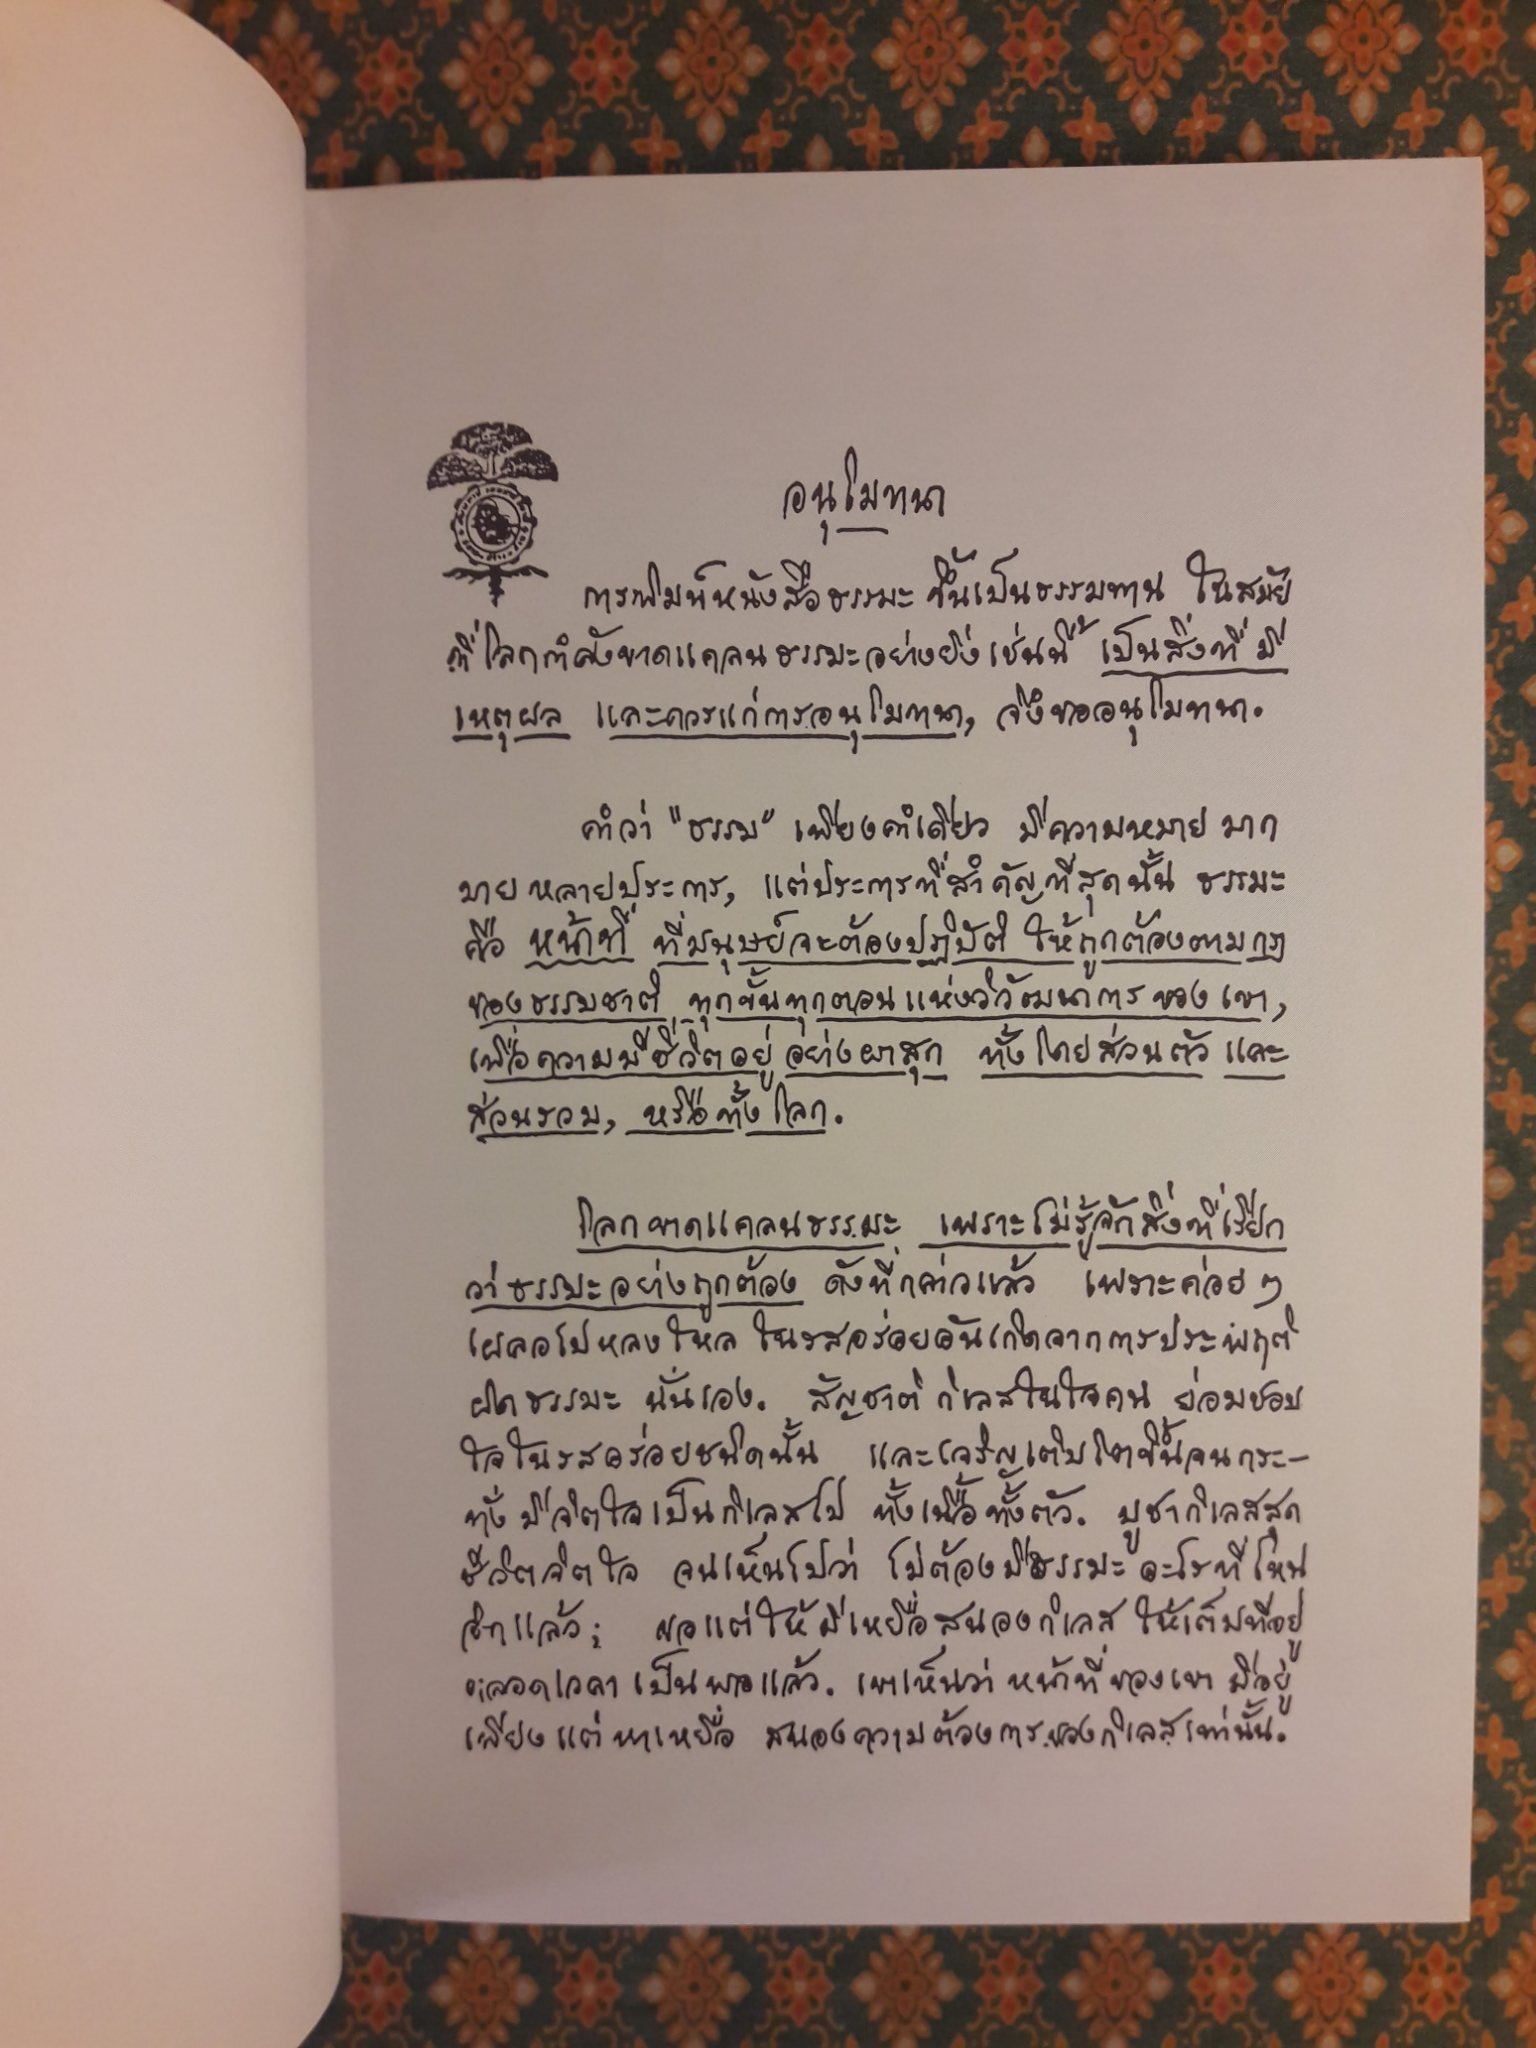 อนุโมทนา
การพิมพ์หนังสือธรรมะ ขึ้นเป็นธรรมทาน ในสมัย
ที่โลกกำลังขาดแคลนธรรมะอย่างยิ่งเช่นนี้ เป็นสิ่งที่มี
เหตุผล และควรแก่การอนุโมทนา, จึงขออนุโมทนา.
คำว่า "ธรรม" เพียงคำเดียว มีความหมายมาก
มายหลายประการ, แต่ประการที่สำคัญที่สุดนั้น ธรรมะ
คือ หน้าที่ ที่มนุษย์จะต้องปฏิบัติ ให้ถูกต้องตามกฎ
ของธรรมชาติ ทุกขั้นทุกตอนแห่งวิวัฒนาการ ของเขา,
เพื่อความมีชีวิตอยู่ อย่างผาสุก ทั้งโดยส่วนตัว และ
ส่วนรวม, หรือทั้งโลก.
โลกขาดแคลนธรรมะ เพราะไม่รู้จักสิ่งที่เรียก
ว่าธรรมะอย่างถูกต้อง ดังที่กล่าวแล้ว เพราะค่อยๆ
เผลอไปหลงใหล ในรสอร่อยอันเกิดจากการประพฤติ
ผิดธรรมะ นั่นเอง. สัญชาติกิเลสในใจคน ย่อมชอบ
ใจในรสอร่อยชนิดนั้น และเจริญเติบโตขึ้นจนกระ-
ทั่งมีจิตใจเป็นกิเลสไป ทั้งเนื้อทั้งตัว. บูชากิเลสสุด
ชีวิตจิตใจ จนเห็นไปว่า ไม่ต้องมีธรรมะ อะไรที่ไหน
อีกแล้ว; ขอแต่ให้มีเหยื่อสนองกิเลส ให้เต็มที่อยู่
ตลอดเวลา เป็นพอแล้ว. เขาเห็นว่า หน้าที่ของเขา มีอยู่
เพียงแต่ หาเหยื่อ สนองความต้องการของกิเลสเท่านั้น.